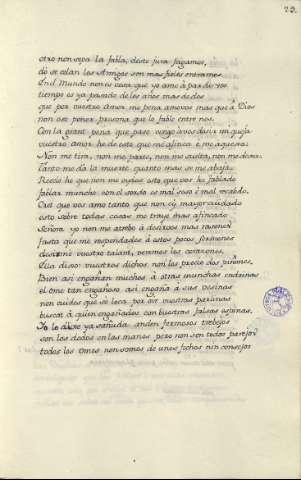 23.
otro non sepa la fabla, desto jura fagamos,
dó se celan los Amigos son mas fieles entramos.
En el Mundo non es cosa que yo ame á par de vos
tiempo es ya pasado de los años mas de dos
que por vuestro Amor me pena amovos mas que á Dios
non oso poner presona que lo fable entre nos.
Con la grant pena que paso vengo á vos desir mi queja
vuestro amor he deseo que me afinca é me aquexa:
Non me tira, non me parte, non me suelta, non me dexa:
Tanto me dá la muerte quanto mas se me abaja.
Recelo he que non me oydes esto que vos he fablado
fablar muncho con el sordo es mal seso é mal recabdo.
Cred que vos amo tanto que non ey mayor cuidado
esto sobre todas cosas me traye mas afincado
Señora yo non me atrebo á desirvos mas rasones
fasta que me respondades á estos pocos sermones
desitme vuestro talant, veremos los corazones.
Ella dixo: vuestros dichos non los precio dos piñones.
Bien asi engañan munchos á otras munchas endrinas
el ome tan engañoso asi engaña á sus vesinas
non cuides que so loca por oir vuestras parlinas
buscat á quien engañedes con vuestras falsas espinas.
Yo le dixe ya sañuda anden fermosos trebejos
son los dedos en las manos pero non son todos parejos
todos los omes non somos de unos fechos nin consejos